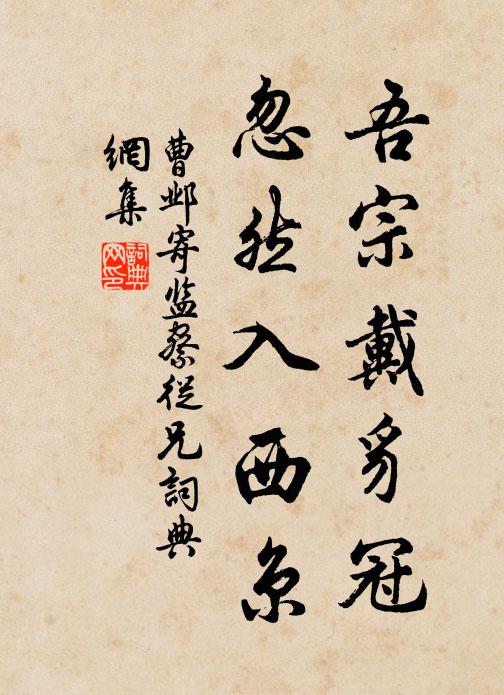 吾宗戴豸冠
忽然入西京
曹邺寄监察從兄詞典
網集
詞典
网印